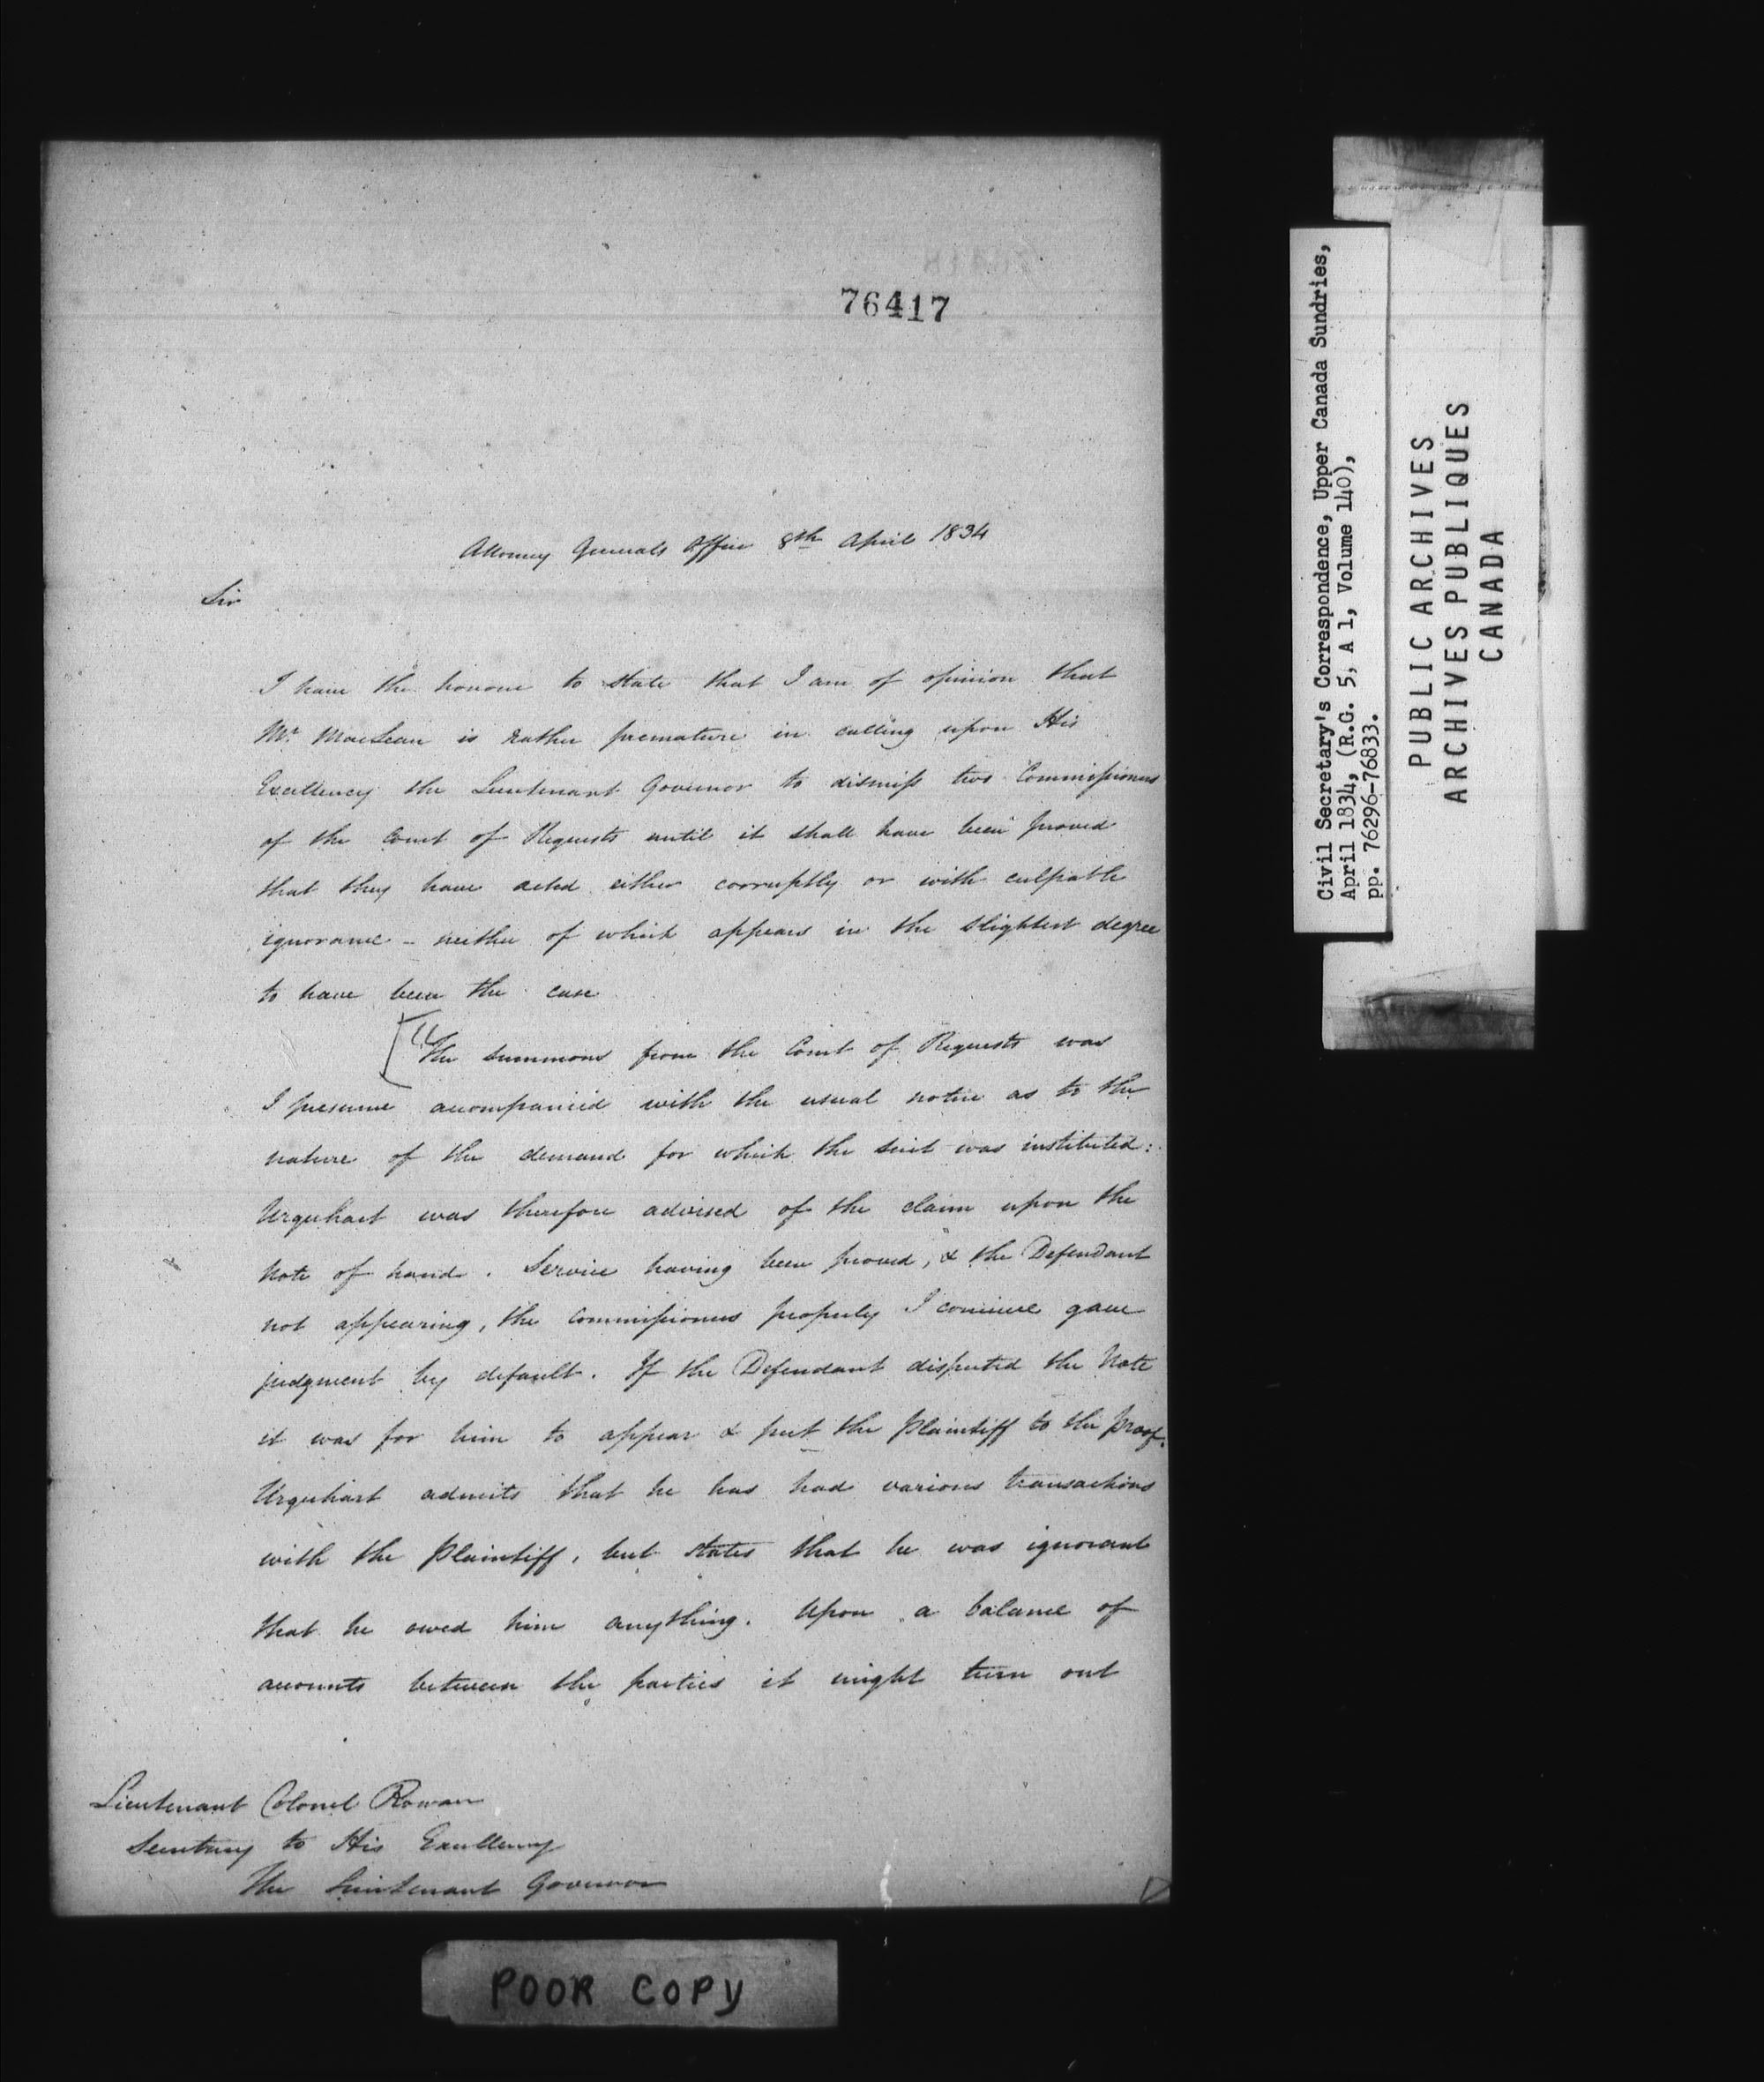 76417
Attorney Generals Office 8th April 1834
Sir
I have the honour to state that I am of opinion that
Mr. MacLean is rather premature in calling upon His
Excellency the Lieutenant Governor to dismiss two Commissioners
of the Court of Requests until it shall have been proved
that they have acted either corruptly or with culpable
ignorance – neither of which appears in the slightest degree
to have been the case
[" The summons from the Court of Requests was
I presume accompanied with the usual notice as to the
nature of the demand for which the suit was instituted:
Urquhart was therefore advised of the claim upon the
Note of hand. Service having been proved, & the Defendant
not appearing, the Commissioners properly I conceive gave
judgment by default. If the Defendant disputed the Note
it was for him to appear & put the Plaintiff to the proof.
Urquhart admits that he has had various transactions
with the Plaintiff, but states that he was ignorant
that he owed him anything. Upon a balance of
accounts between the parties it might turn out
Lieutenant Colonel Rowan
Secretary to His Excellency
The Lieutenant Governor
POOR COPY
Civil Secretary's Correspondence, Upper Canada Sundries,
April 1834, (R.G. 5, A 1, Volume 140),
pp. 76296-76833.
PUBLIC ARCHIVES
ARCHIVES PUBLIQUES
CANADA